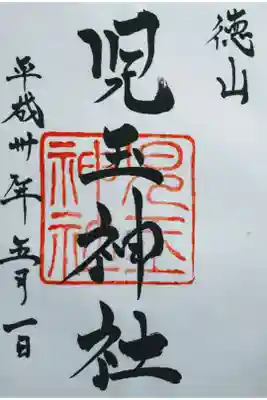 徳山
児玉神社
児玉神社
平成卅年五月一日